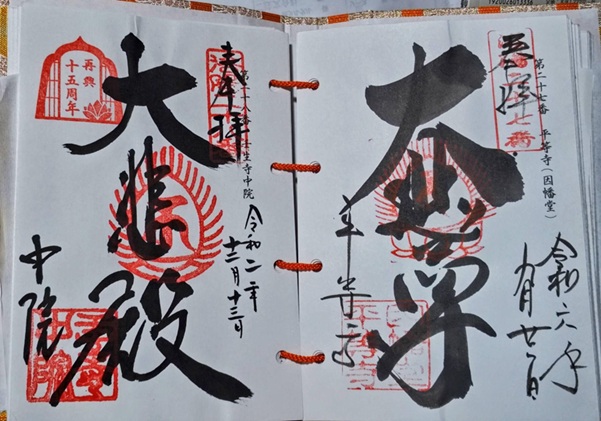 第二十七番 平等寺(因幡堂)
奉拝
大悲尊
平等寺
令和六年
第二十八番 壬生寺中院
奉拝
大悲殿
令和二年
十二月十三日
中院
再興
十五周年